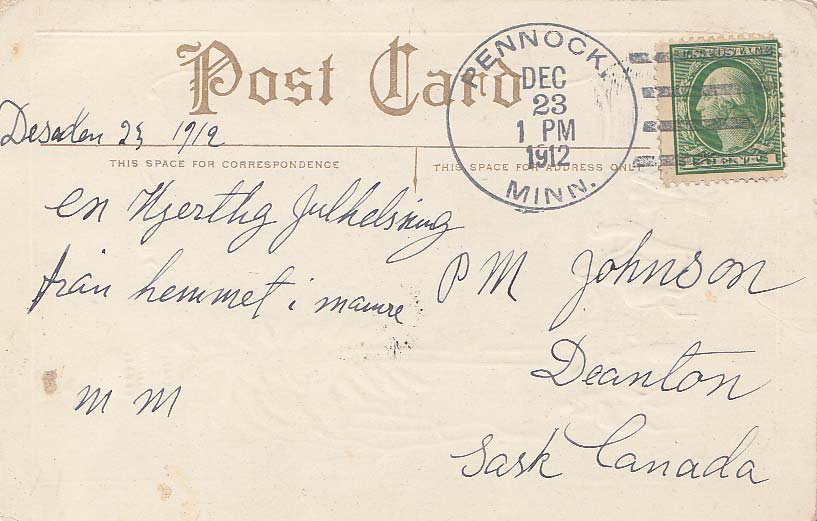 Post Card
PENNOCK,
DEC
23
1 PM
1912
MINN.
U.S. POSTAGE
23, 1912
THIS SPACE FOR CORRESPONDENCE
THIS SPACE FOR ADDRESS ONLY
en Hjertlig Julhelsning
från hemmet i mamre
M M
P M Johnson
Deanton
Sask Canada